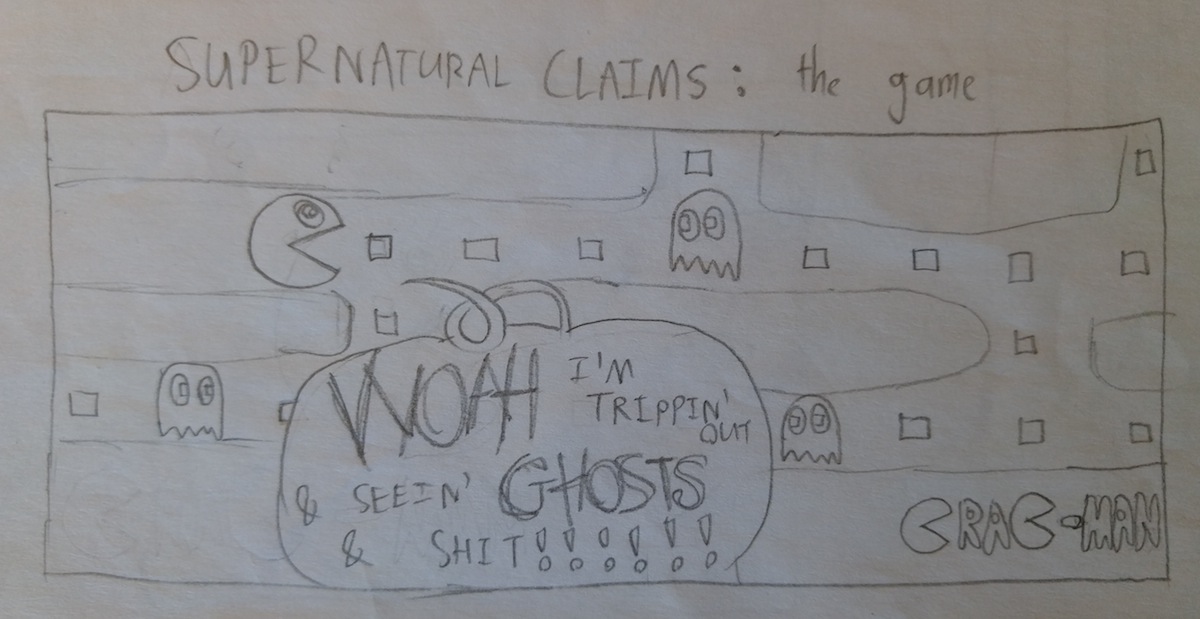 SUPERNATURAL CLAIMS: the game
WOAH I'M
TRIPPIN'
OUT
& SEEIN' GHOSTS
& SHIT!!!!!!
CRAC-MAN